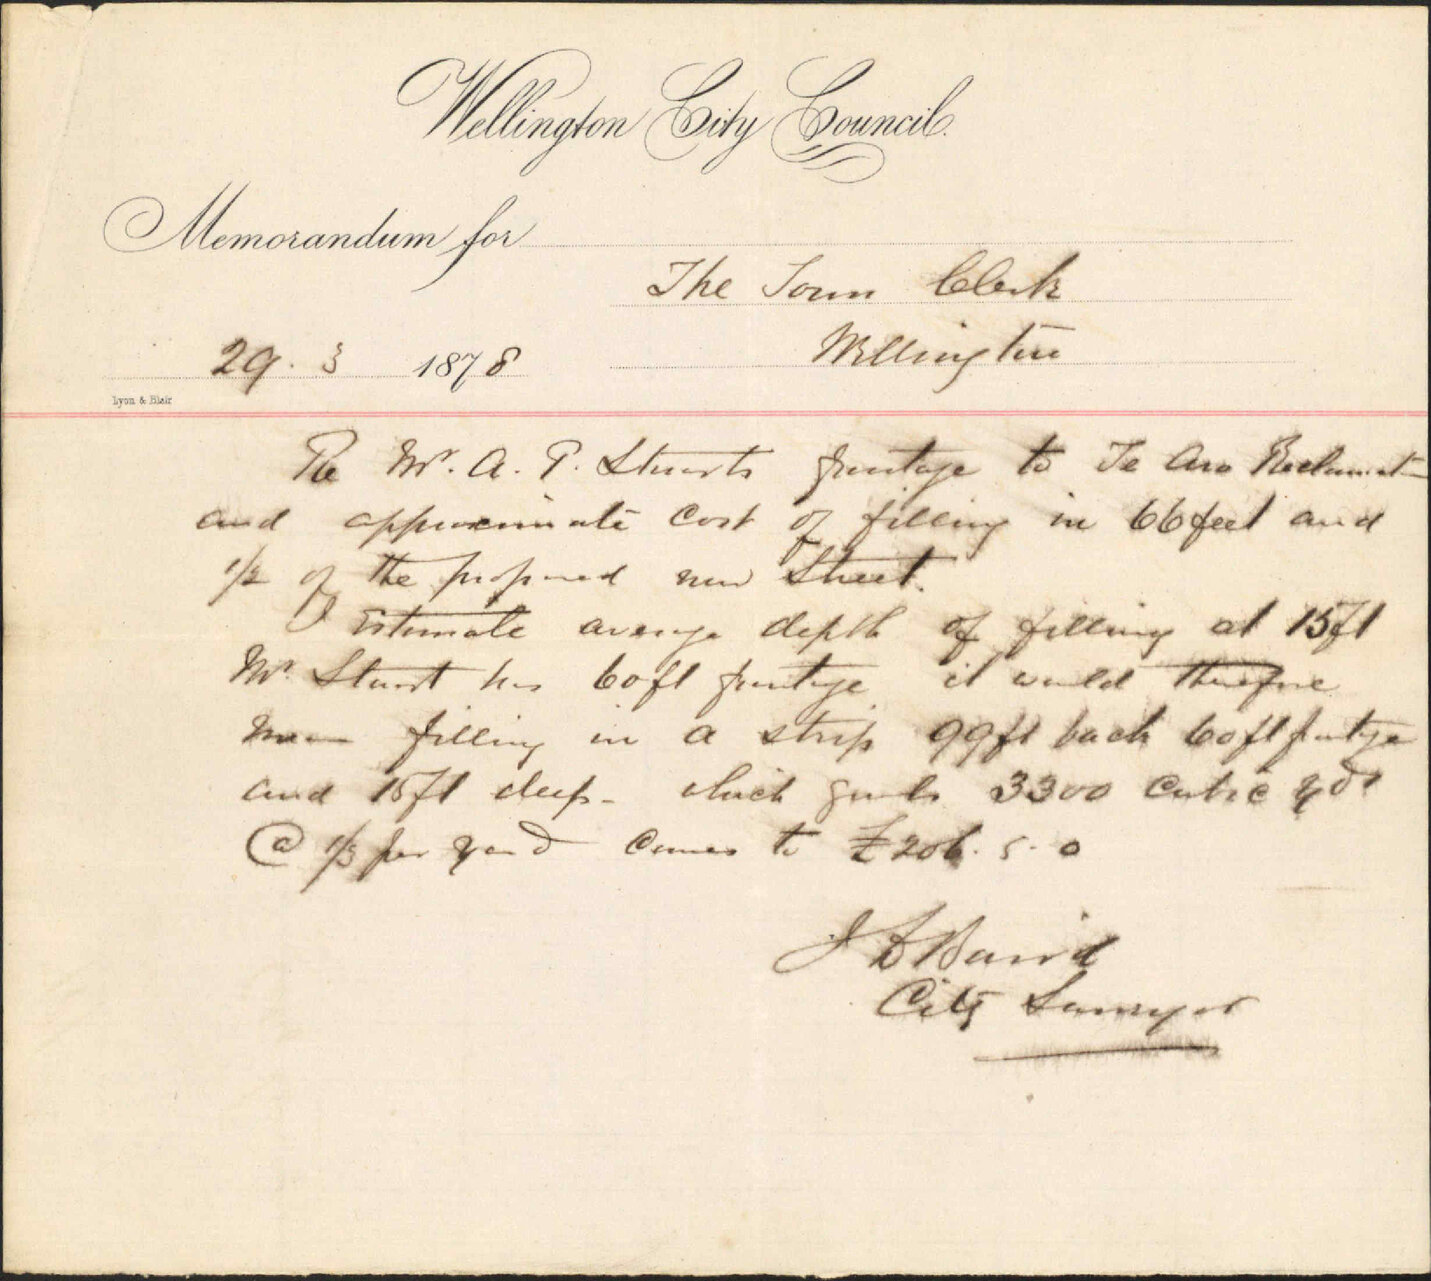 Wellington City Council.
Memorandum for
The Town Clerk
Wellington
29. 3 1878
Lyon & Blair
Re Mr. A. P. Stuarts frontage to Te Aro Reclamation
and approximate cost of filling in 66 feet and
1/2 of the proposed new Street.
I Estimate average depth of filling at 15ft
Mr. Stuart has 60ft frontage it would therefore
mean filling in a strip 99ft back 60ft frontage
and 15ft deep - which equals 3300 cubic yds
@ 1/3 per yard comes to £206. 5. 0
J D Baird
City Surveyor